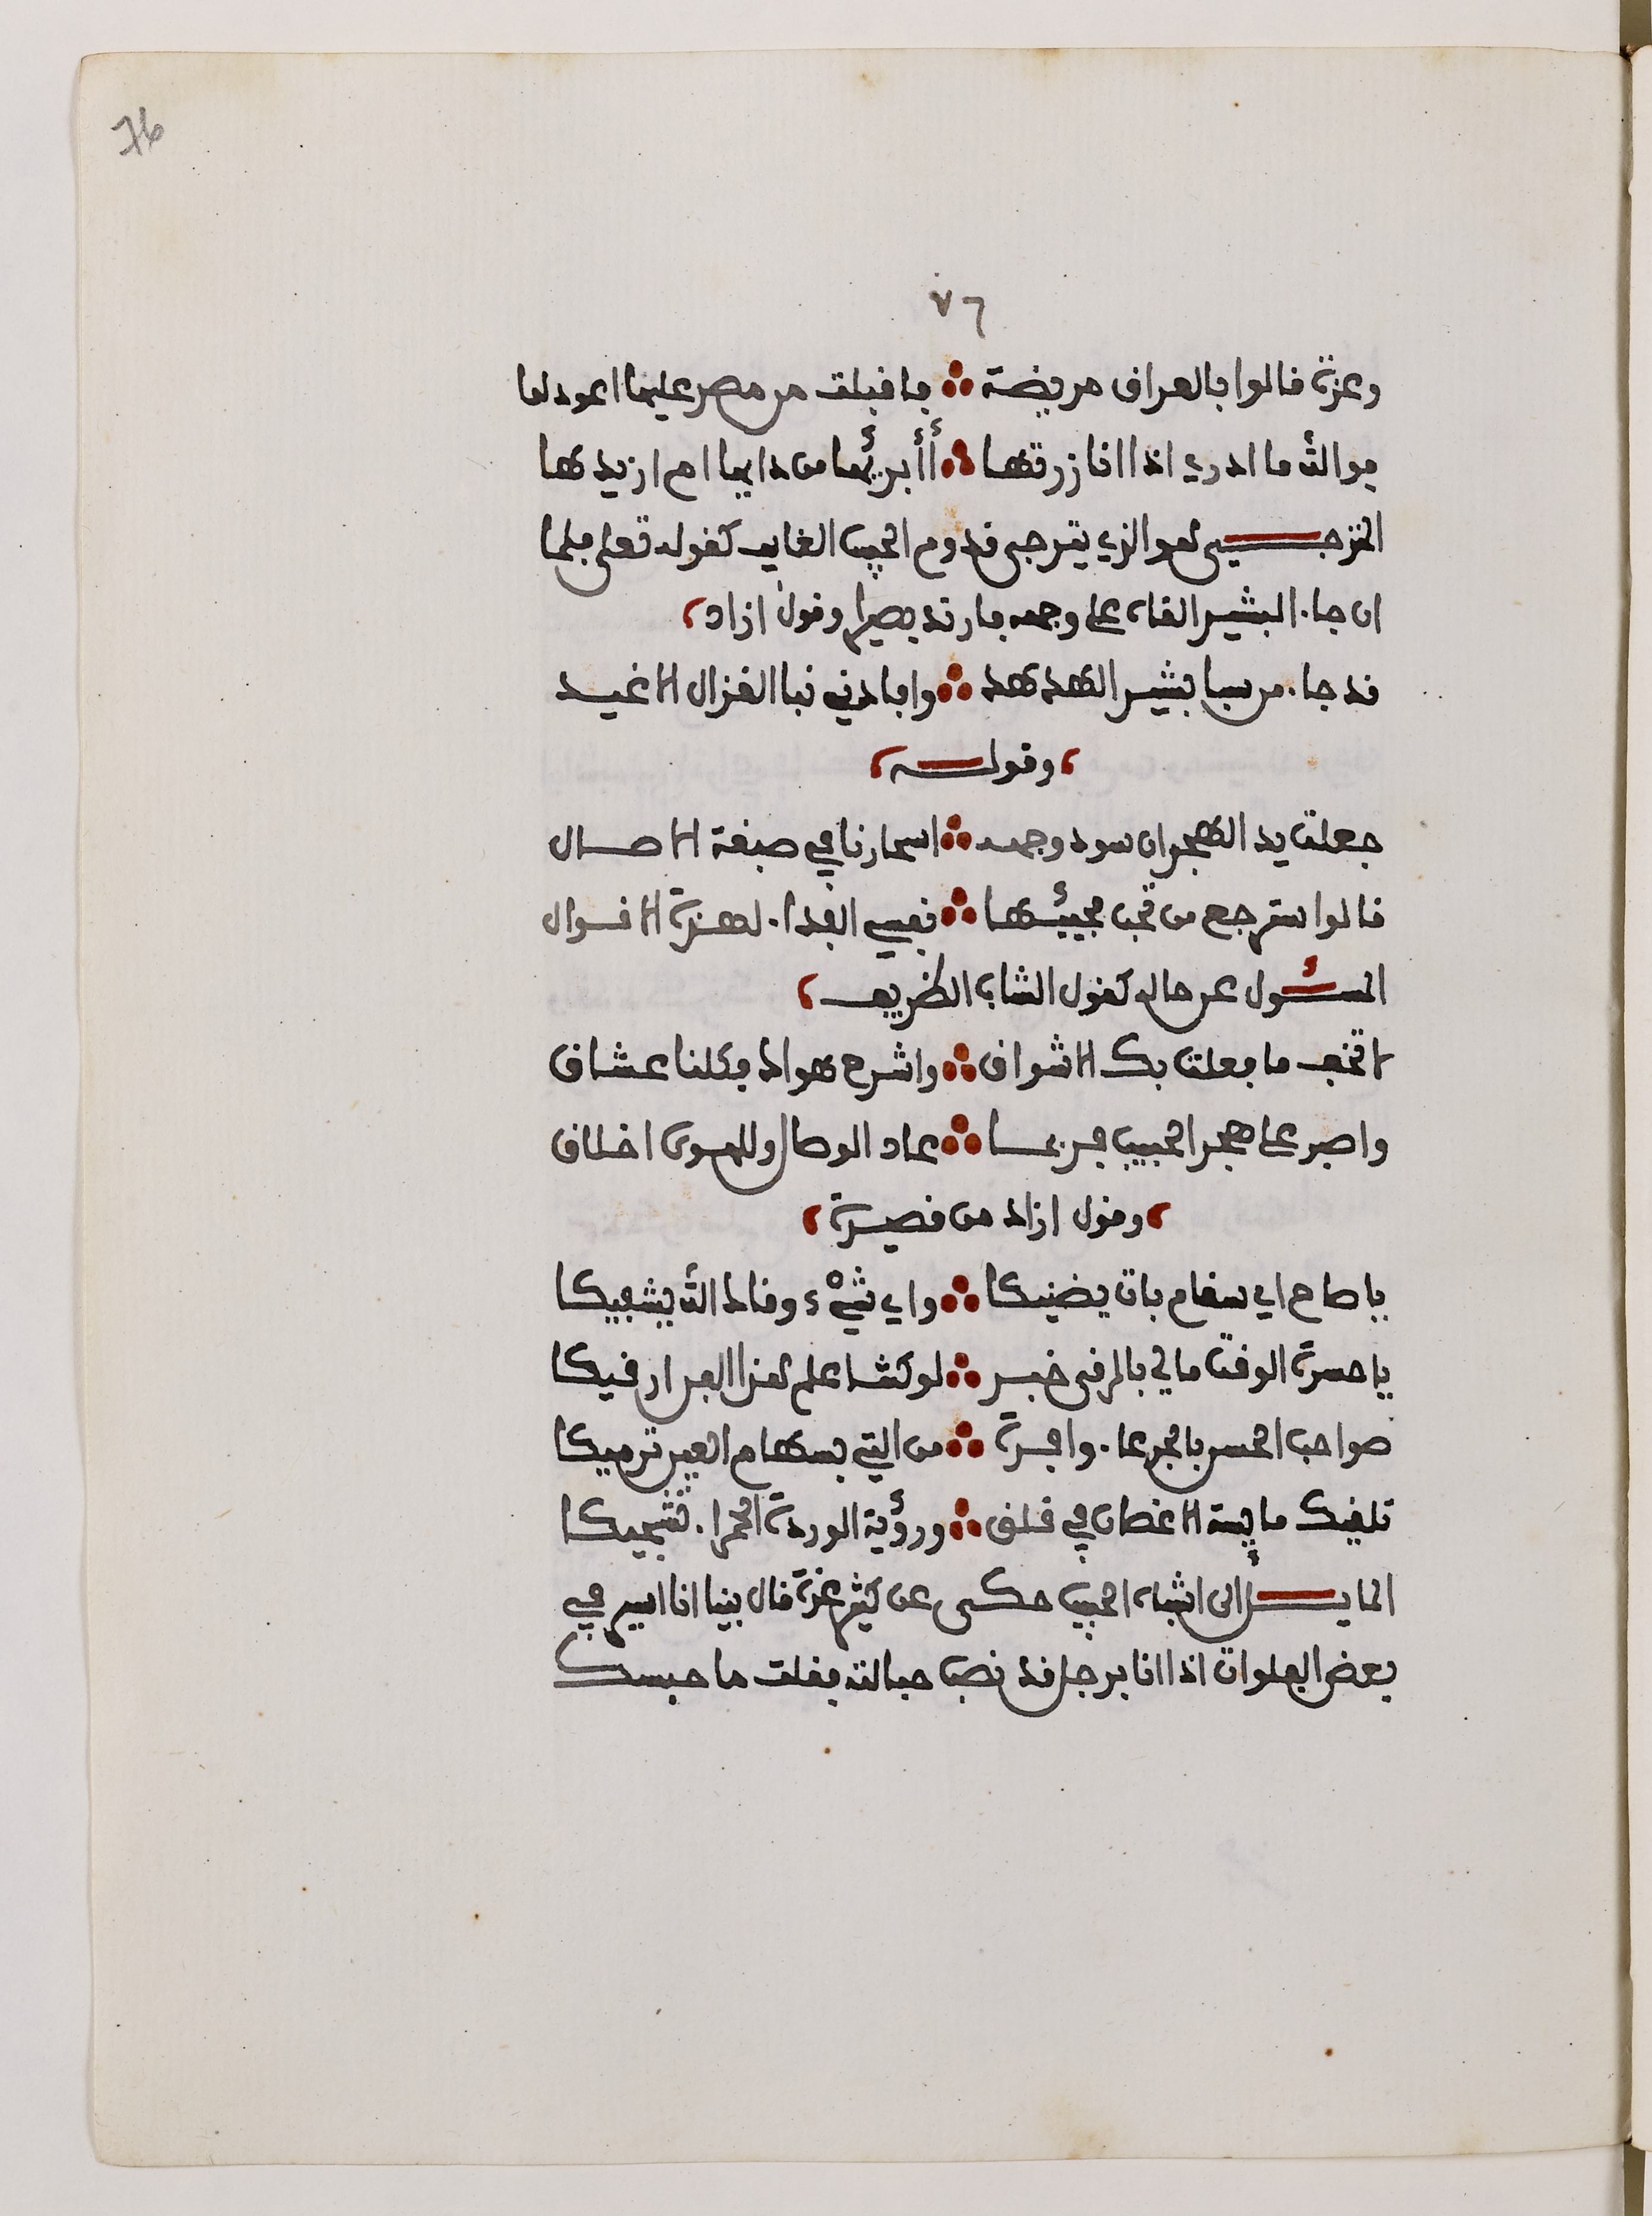 76
٧٦
وعزة قالوا بالعراق مريضة ؞ فاقبلت من مصر عليها اعودها
فوالله ما ادري اذا انا زرتها ؞ أأبرئها من دايها ام ازيدها
المترجـــي هو الذي يترجى قدوم الحبيب الغايب كقوله تعلى فلما
ان جاء البشير القاه على وجهه فارتد بصيرا وقول ازاد،
قد جاء من سبا بشير الهدهد ؞ وافادني نبا الغزال الاغيد
،وقولـــه،
جعلت يد الهجران سود وجهه ؞ اسحارنا في صبغة الاصال
قالوا سترجع من قريب مجيئها ؞ نفسي الفداء لهذة الاقوال
المســـئول عن حاله كقول الشاب الظريف،
لا تخف ما فعلت بك الاشواق ؞ واشرح هواك فكلنا عشاق
واصبر على هجر الحبيب فربما ؞ عاد الوصال وللهوى اخلاق
،وقول ازاد من قصيدة،
يا صاح اي سقام بات يضنيكا ؞ واي شيْء وقاك الله يشفيكا
يا حسرة الوقت مالي بالرقى خبر ؞ لو كنت اعلم هذا الفن ارقيكا
صواحب الحسن بالجرعاء وافرة ؞ من التي بسهام العين ترميكا
تلفيك مايسة الاغصان في قلق ؞ ورؤية الوردة الحمراء تشجيكا
المايـــل الى اشباه الحبيب حكى عن كثير عزة قال بينا انا اسير في
بعض الفلوات اذا انا برجل قد نصب حبالته فقلت ما حبسك